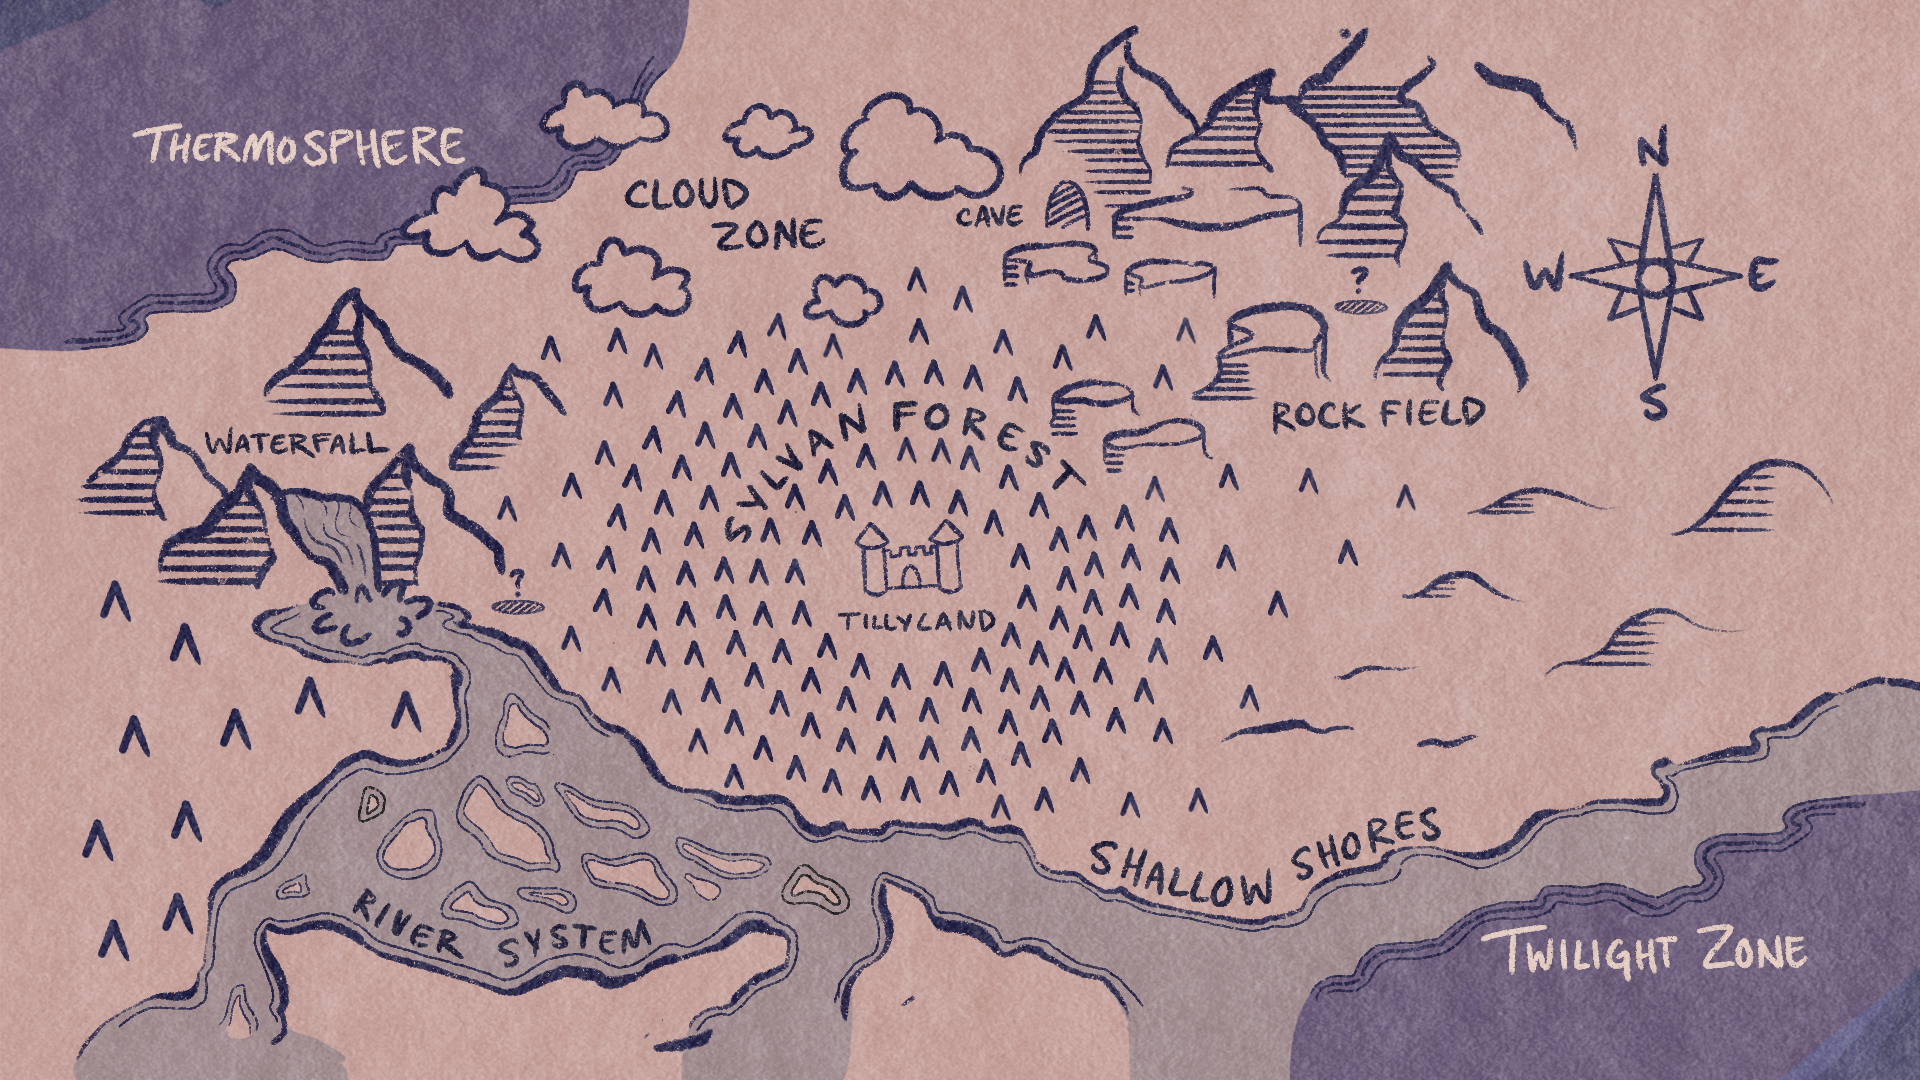 THERMOSPHERE
CLOUD
ZONE
CAVE
N
W
E
S
?
ROCK FIELD
WATERFALL
SYLVAN FOREST
?
TILLYLAND
SHALLOW SHORES
RIVER SYSTEM
TWILIGHT ZONE